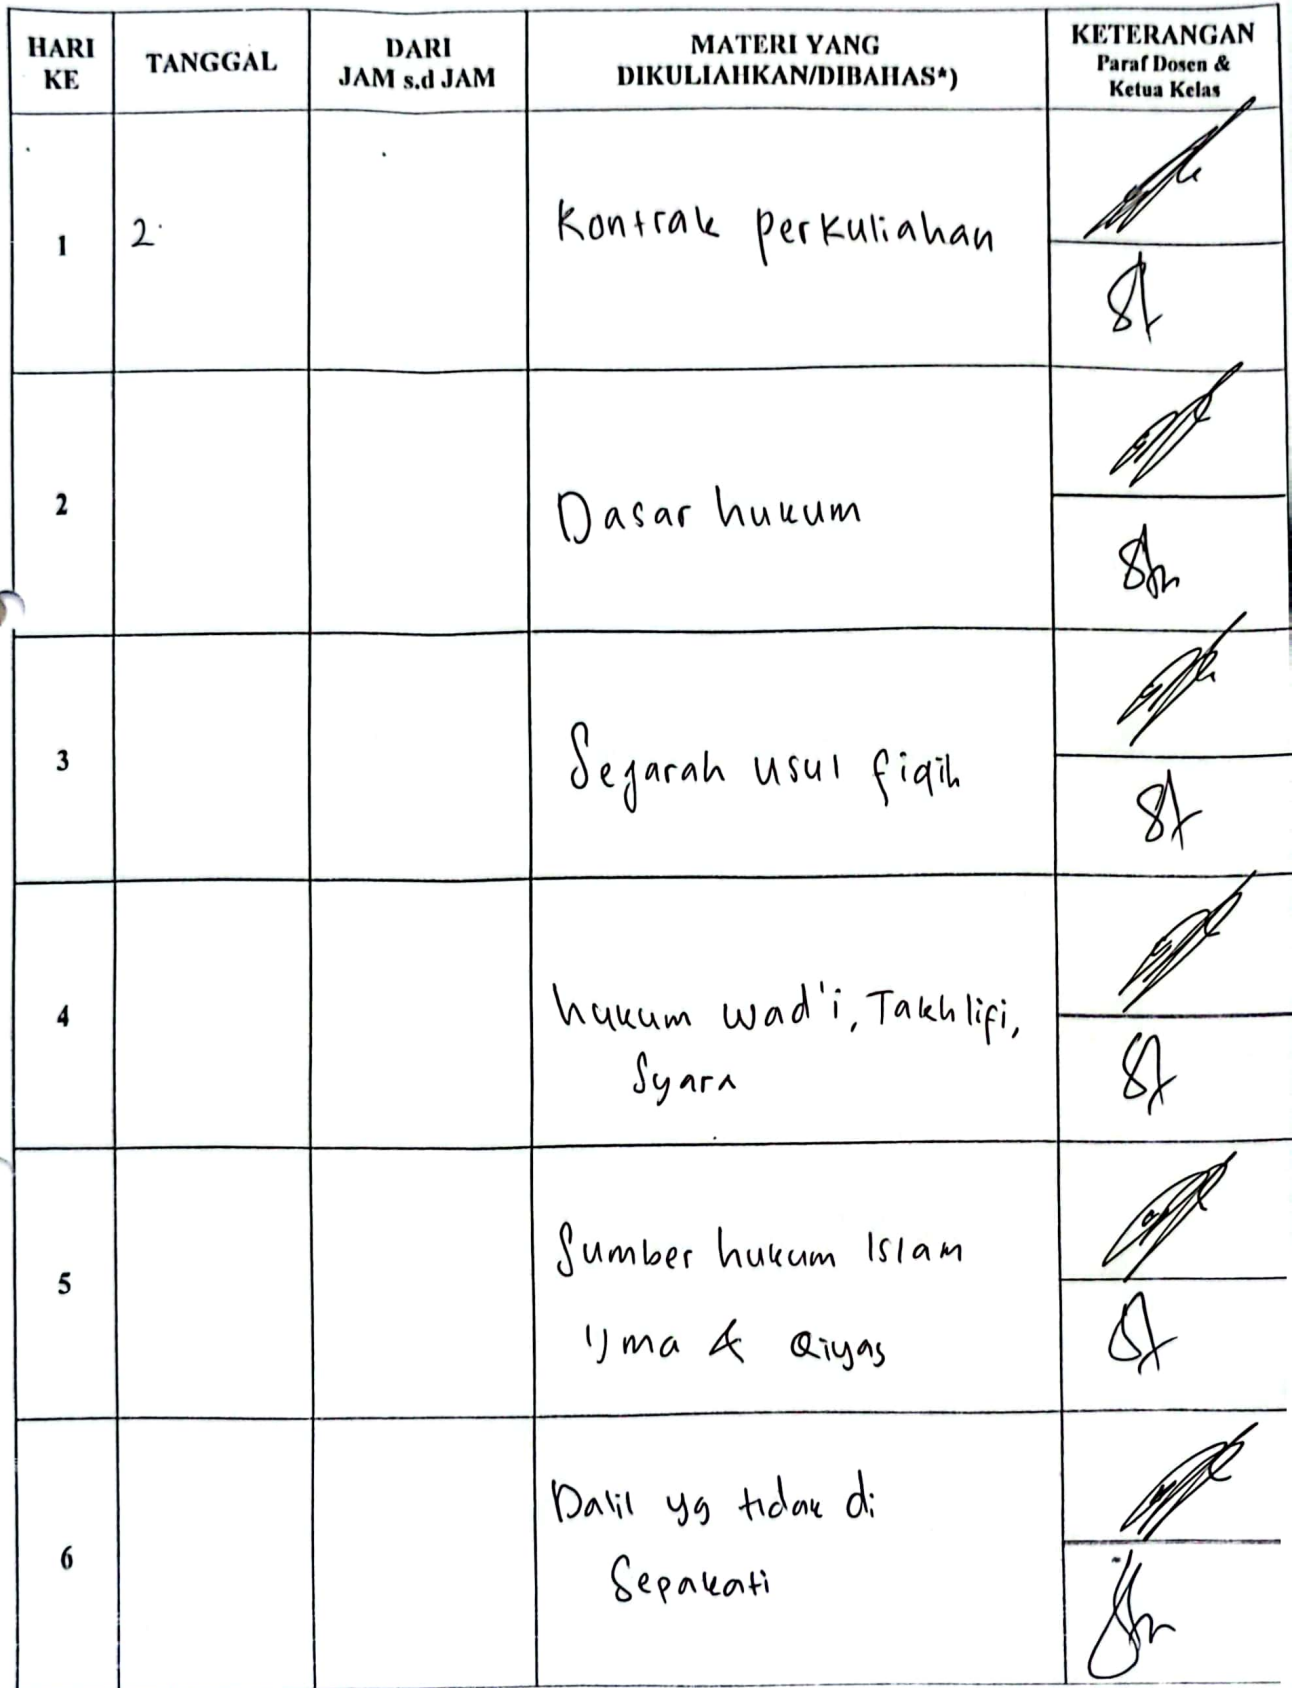 HARI KE
TANGGAL
DARI
JAM s.d JAM
MATERI YANG
DIKULIAHKAN/DIBAHAS*)
KETERANGAN
Paraf Dosen &
Ketua Kelas
1
2
Kontrak perkuliahan
2
Dasar hukum
3
Sejarah usul fiqih
4
hukum wad'i, Takhlifi,
Syara
5
Sumber hukum Islam
ijma & Qiyas
6
Dalil yg tidak di
Sepakati